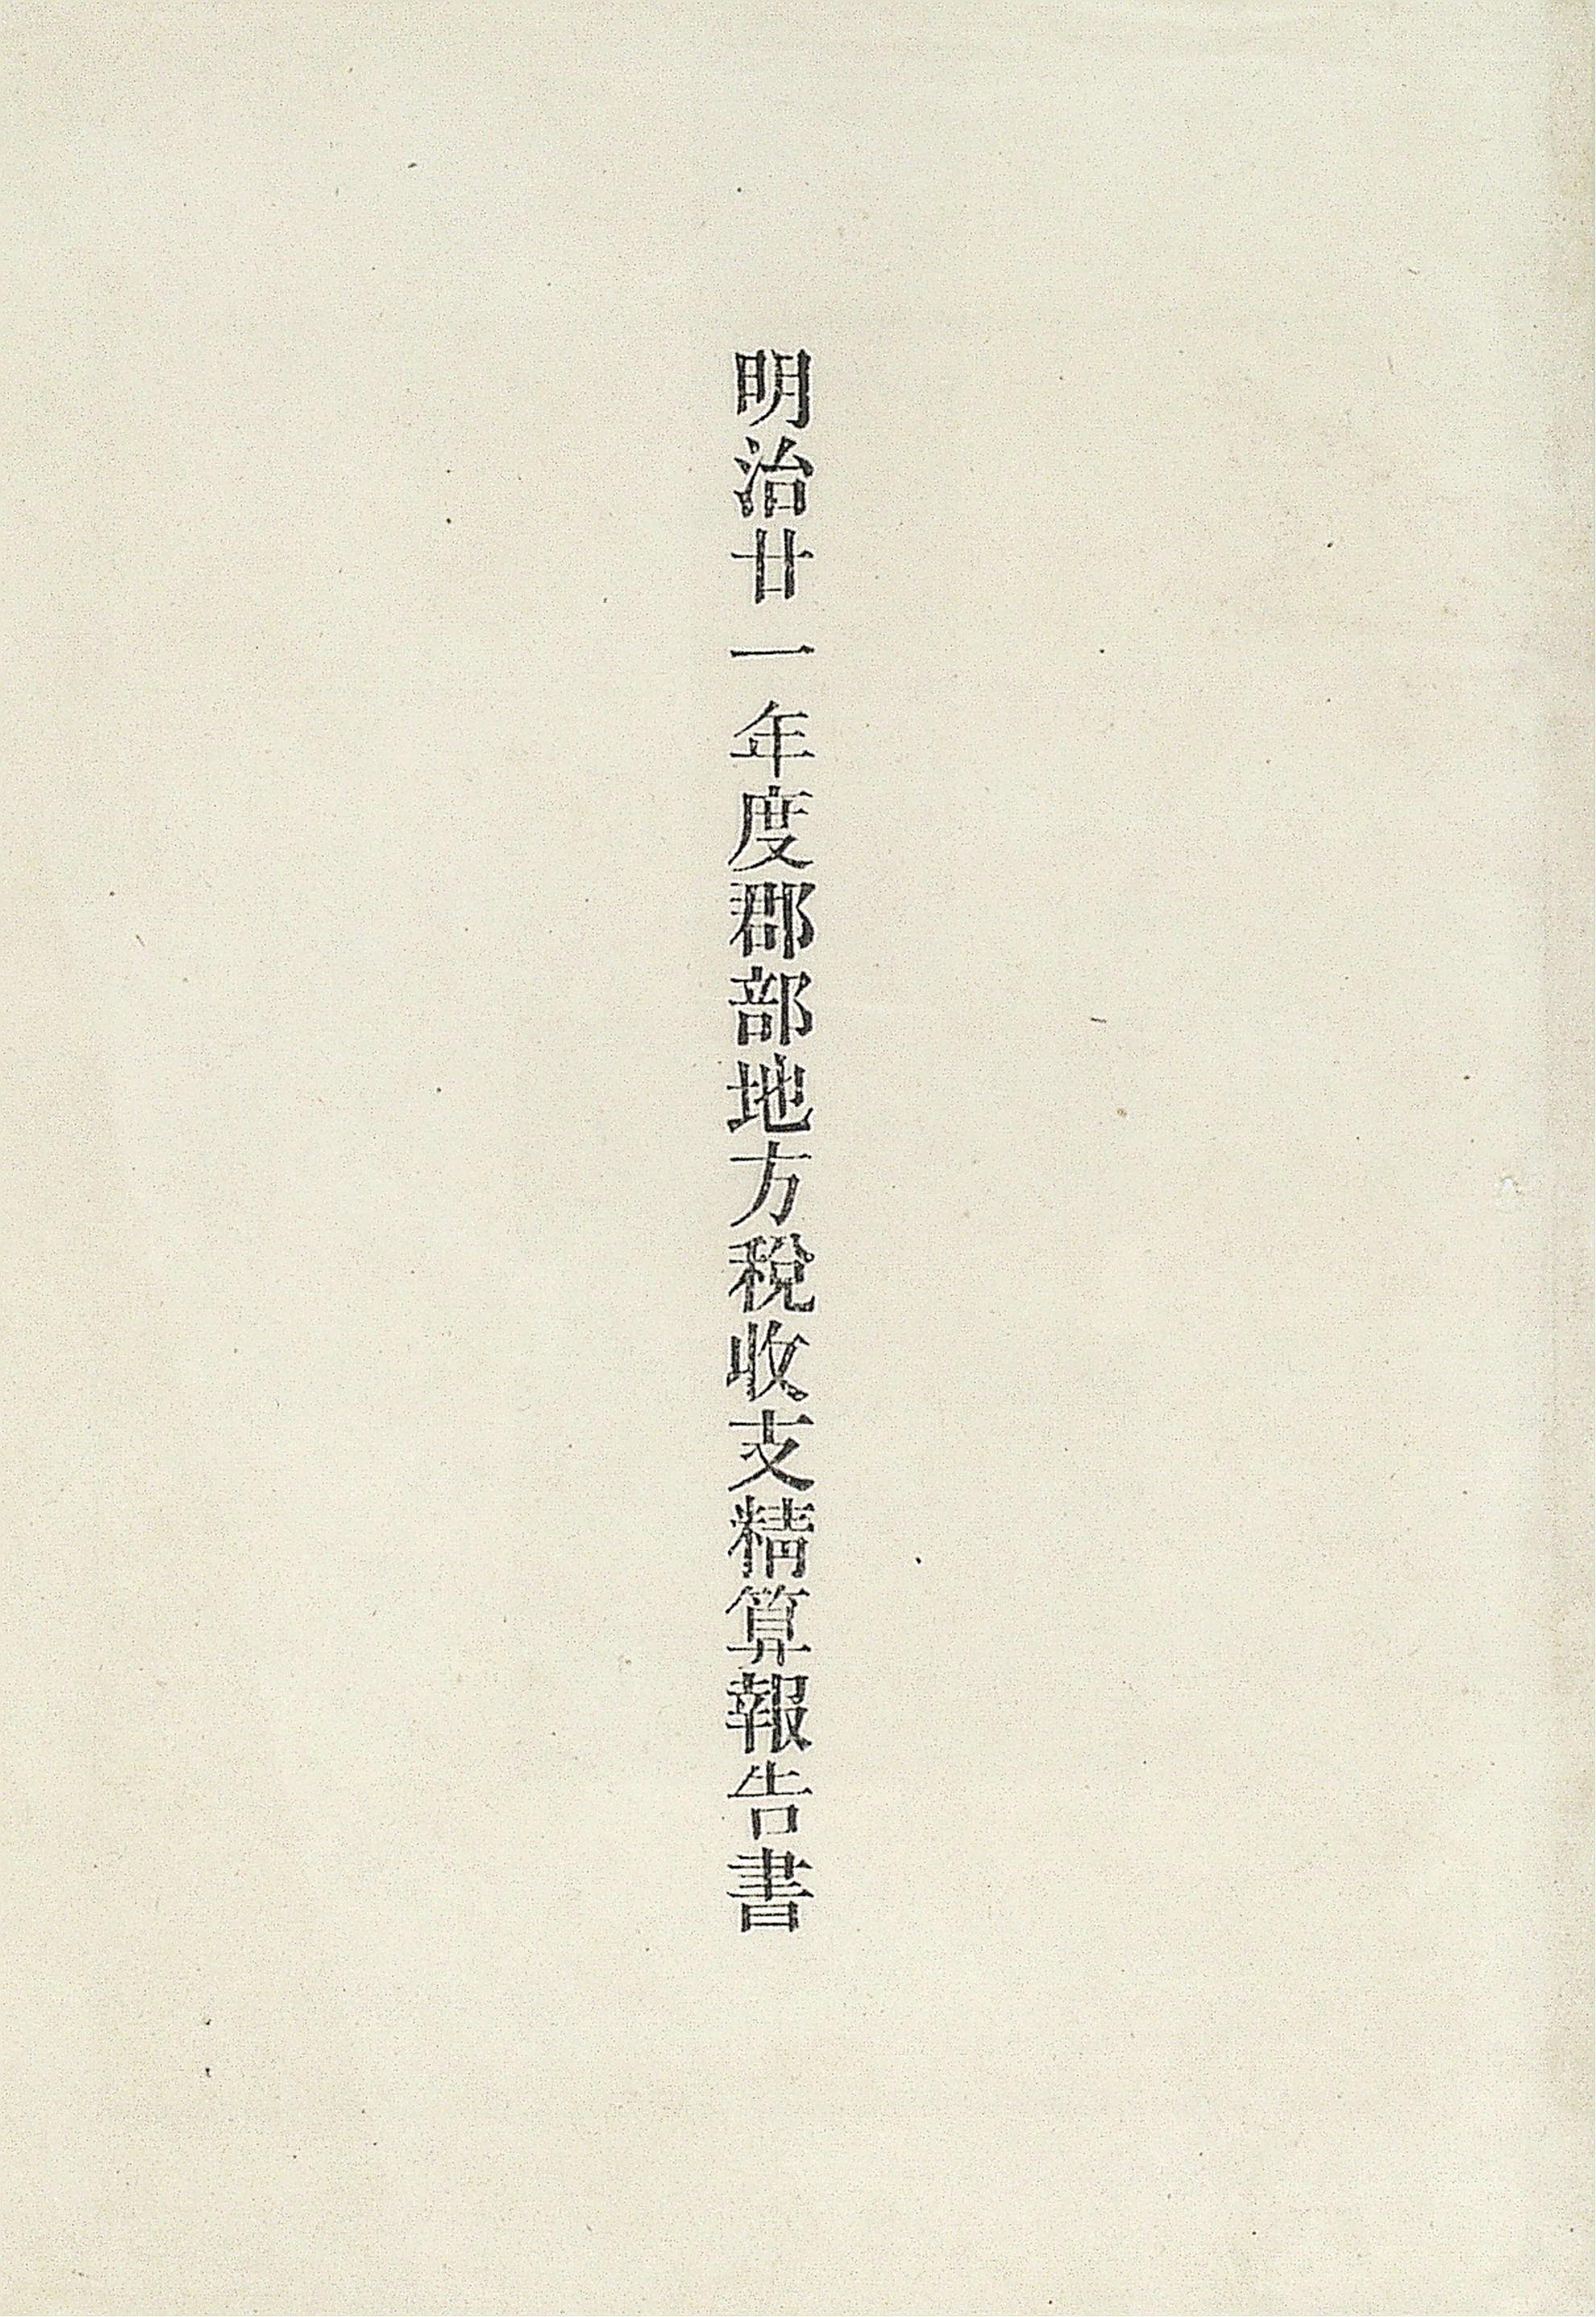 明治廿一年度郡部地方稅收支精算報告書